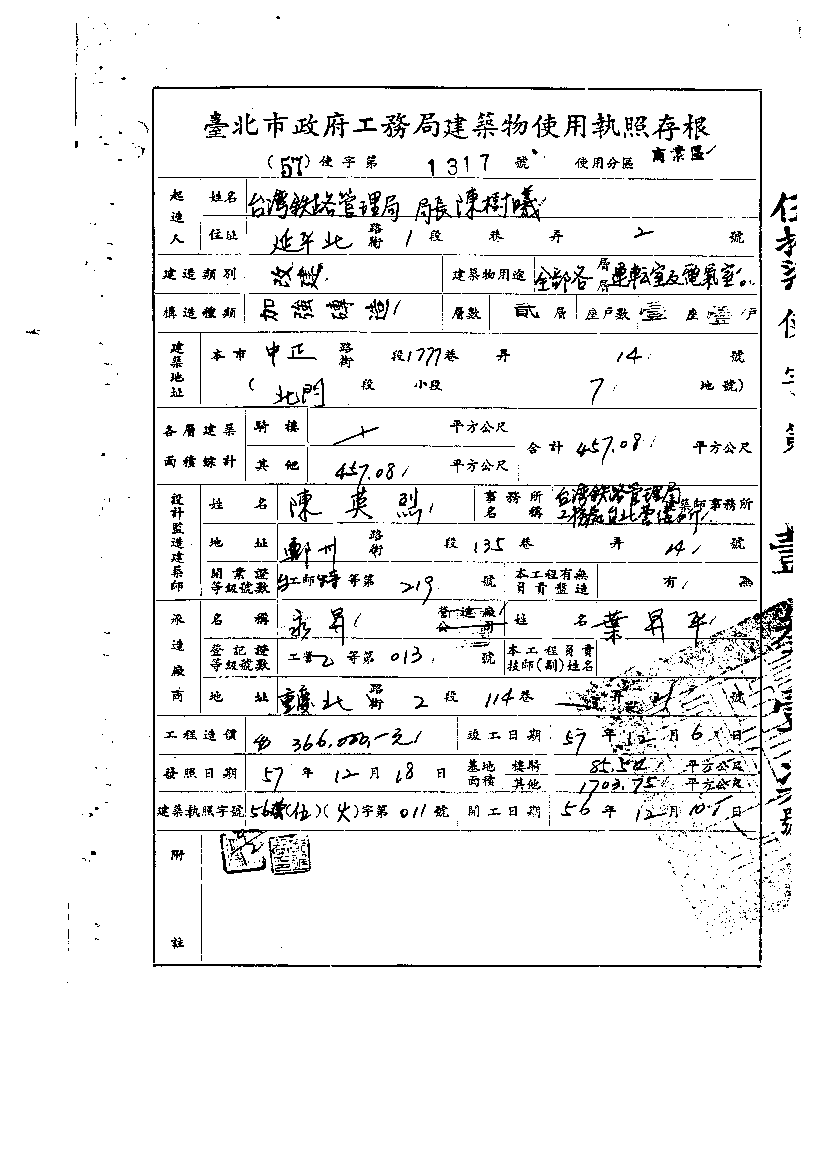 臺北市政府工務局建築物使用執照存根
(57)使字第 1317 號 使用分區 商業區
起造人 姓名 台灣鉄路管理局 局長陳樹曦
住址 延平北 路街 1 段 巷 弄 2 號
建造類別 改建 建築物用途 全部各層層運転室及電氣室
構造種類 加強磚造 層數 貳層 座戶數 壹座 壹戶
建築地址 本市 中正 路街 段 1777巷 弄 14 號
(北門 段 小段 7 地號)
各層建築面積綜計 騎樓 平方公尺 合計 457.08 平方公尺
其他 457.08 平方公尺
設計監造建築師 姓名 陳英烈 事務所名稱 台灣鉄路管理局工務處台北 建築師事務所
地址 鄭州 路街 段 135巷 弄 14 號
開業證等級號數 工師 等第 219 號 本工程有無負責監造 有 無
承造廠商 名稱 永昇 營造廠公司 姓名 葉昇平
登記證等級號數 工營乙等第 013 號 本工程負責技師(副)姓名
地址 重慶北 路街 2 段 114巷 弄 號
工程造價 366,000,-元 竣工日期 57年12月6日
發照日期 57年12月18日 基地面積 樓騎 85.54 平方公尺
其他 1703.75 平方公尺
建築執照字號 56營(伍)(火)字第011號 開工日期 56年12月10日
附註